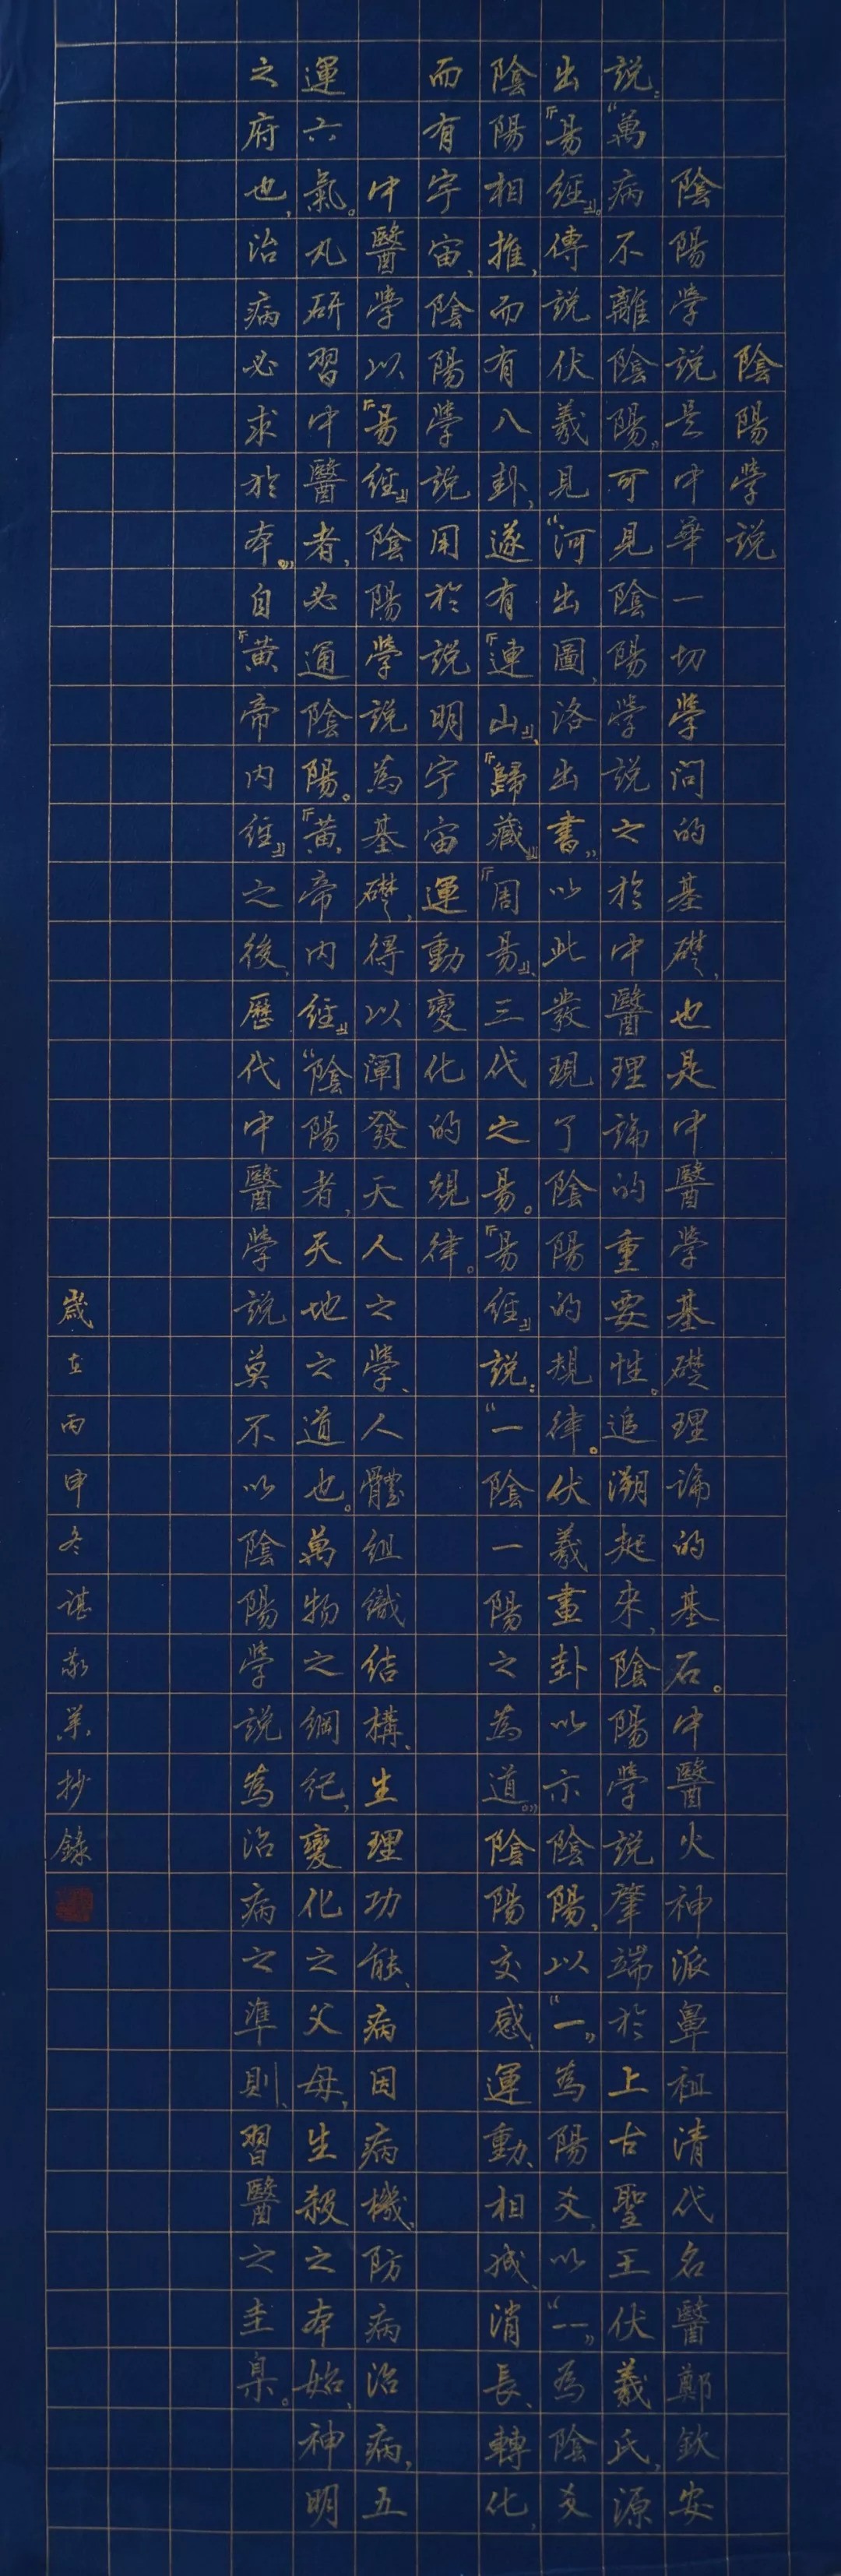 陰陽學說
陰陽學說是中華一切學問的基礎,也是中醫學基礎理論的基石。中醫火神派鼻祖清代名醫鄭欽安
說:“萬病不離陰陽”可見陰陽學說之於中醫理論的重要性。追溯起來,陰陽學說肇端於上古聖王伏羲氏,源
出『易經』。傳說伏羲見“河出圖,洛出書”以此發現了陰陽的規律。伏羲畫卦以示陰陽,以“一”為陽爻,以“--”為陰爻
陰陽相推,而有八卦,遂有『連山』、『歸藏』『周易』三代之易。『易經』說:“一陰一陽之為道。”陰陽交感、運動、相、消長、轉化,
而有宇宙,陰陽學說用於說明宇宙運動變化的規律。
中醫學以『易經』陰陽學說為基礎,得以闡發天人之學、人體組織結構、生理功能、病因病機、防病治病,五
運六氣。凡研習中醫者,必通陰陽。『黃帝內經』“陰陽者,天地之道也。萬物之綱紀,變化之父母,生殺之本始,神明
之府也,治病必求於本。”自『黃帝內經』之後,歷代中醫學說莫不以陰陽學說為治病之準則、習醫之圭臬。
歲在丙申冬諶敬業抄錄